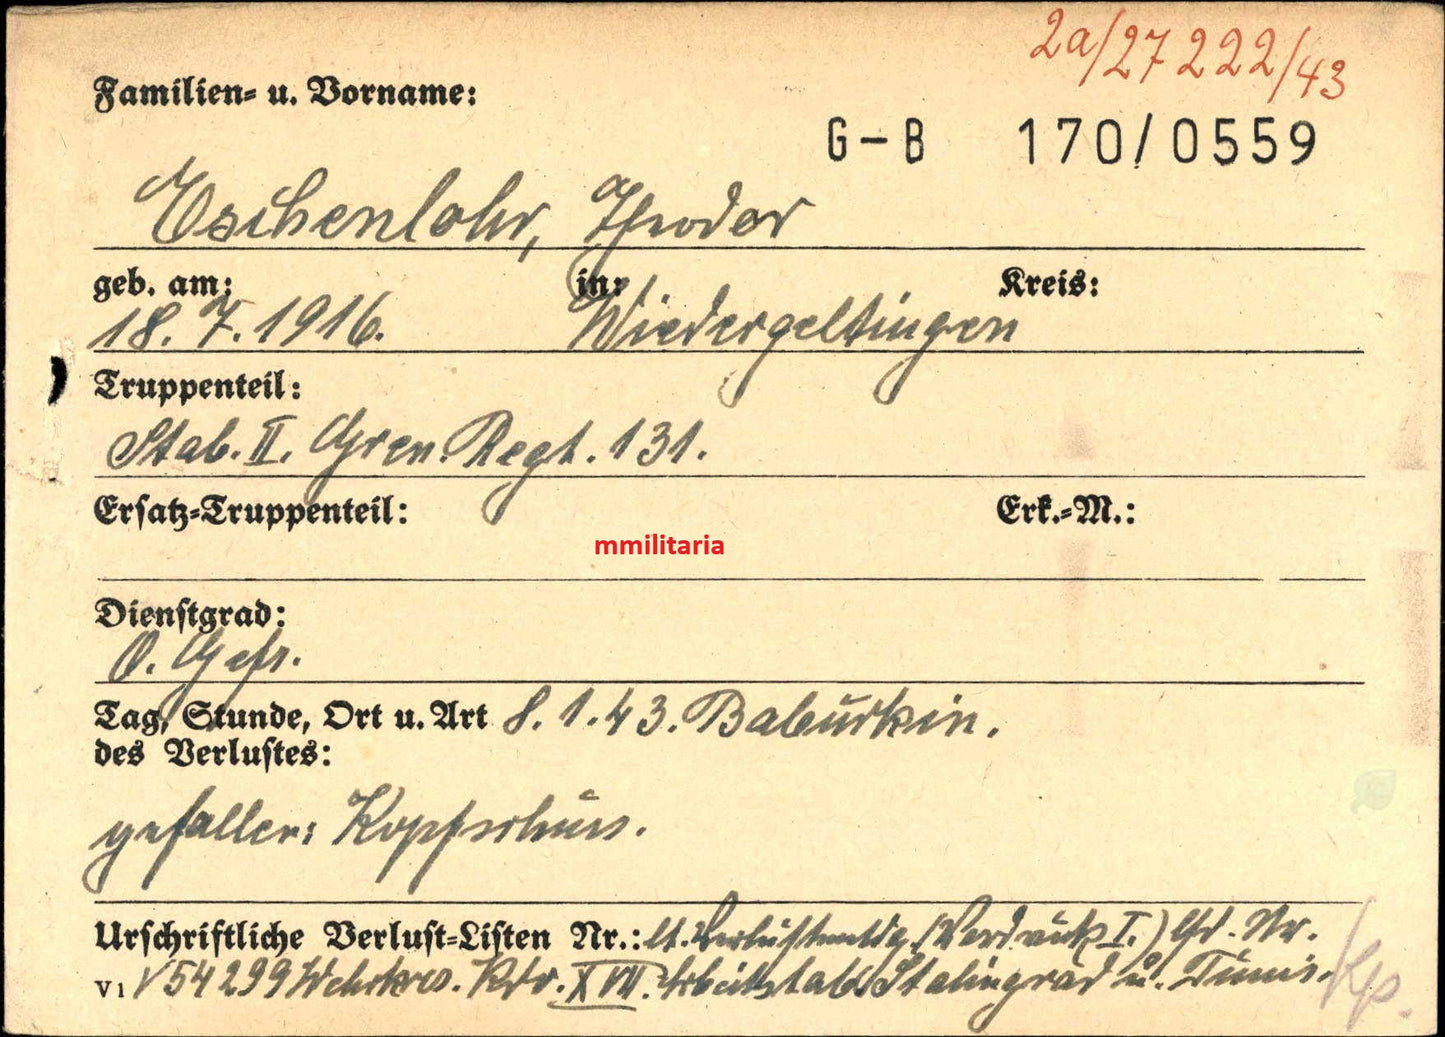 2a/27222/43
Familien- u. Vorname:
G–B 170/0559
Eschenlohr, Theodor
geb. am: in: Kreis:
18.7.1916. Wiedergeltingen
Truppenteil:
Stab. II. Gren. Regt. 131.
Ersatz-Truppenteil: Erk.-M.:
mmilitaria
Dienstgrad:
O. Gefr.
Tag, Stunde, Ort u. Art 8.1.43. Baburkin.
des Verlustes:
gefallen: Kopfschuss.
Urschriftliche Verlust-Listen Nr.: lt. Verlustmeldg. (Vordruck I.) lfd. Nr.
V1 V54299 Wehrkrs. Kdo. XVII. Arbeitsstab Stalingrad u. Tunis.